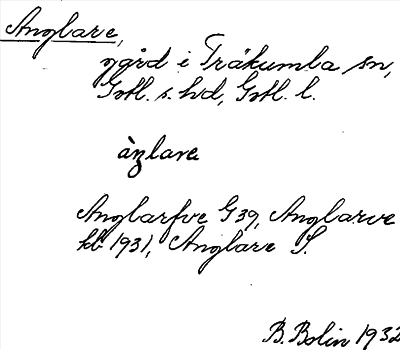 Anglare,
gård i Träkumba sn,
Gotl. s. hd, Gotl. l.
àŋlare
Anglarfve G39, Anglarve
kb 1931, Anglare S.
B. Bolin 1932